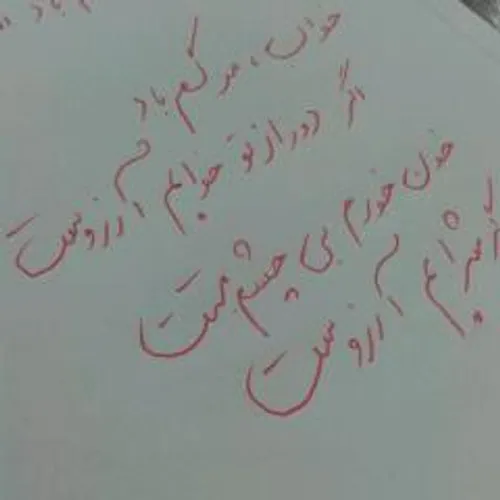 خواب، مرگم باد
گر دور از تو خوابم آرزوست
خون خورم بی چشم مستت
گر شرابم آرزوست